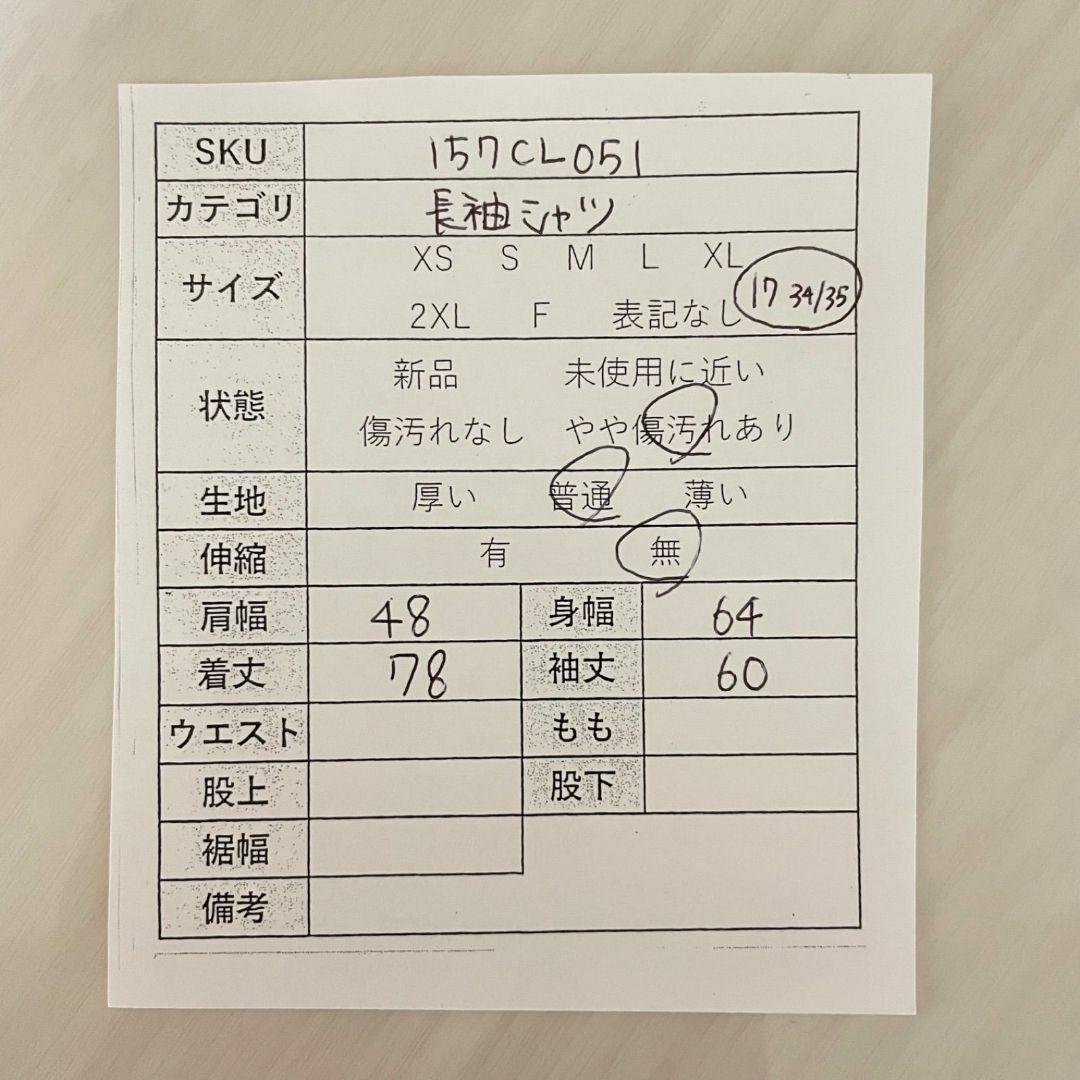 SKU 157CL051
カテゴリ 長袖シャツ
サイズ XS S M L XL
2XL F 表記なし 17 34/35
状態 新品 未使用に近い
傷汚れなし やや傷汚れあり
生地 厚い 普通 薄い
伸縮 有 無
肩幅 48 身幅 64
着丈 78 袖丈 60
ウエスト もも
股上 股下
裾幅
備考